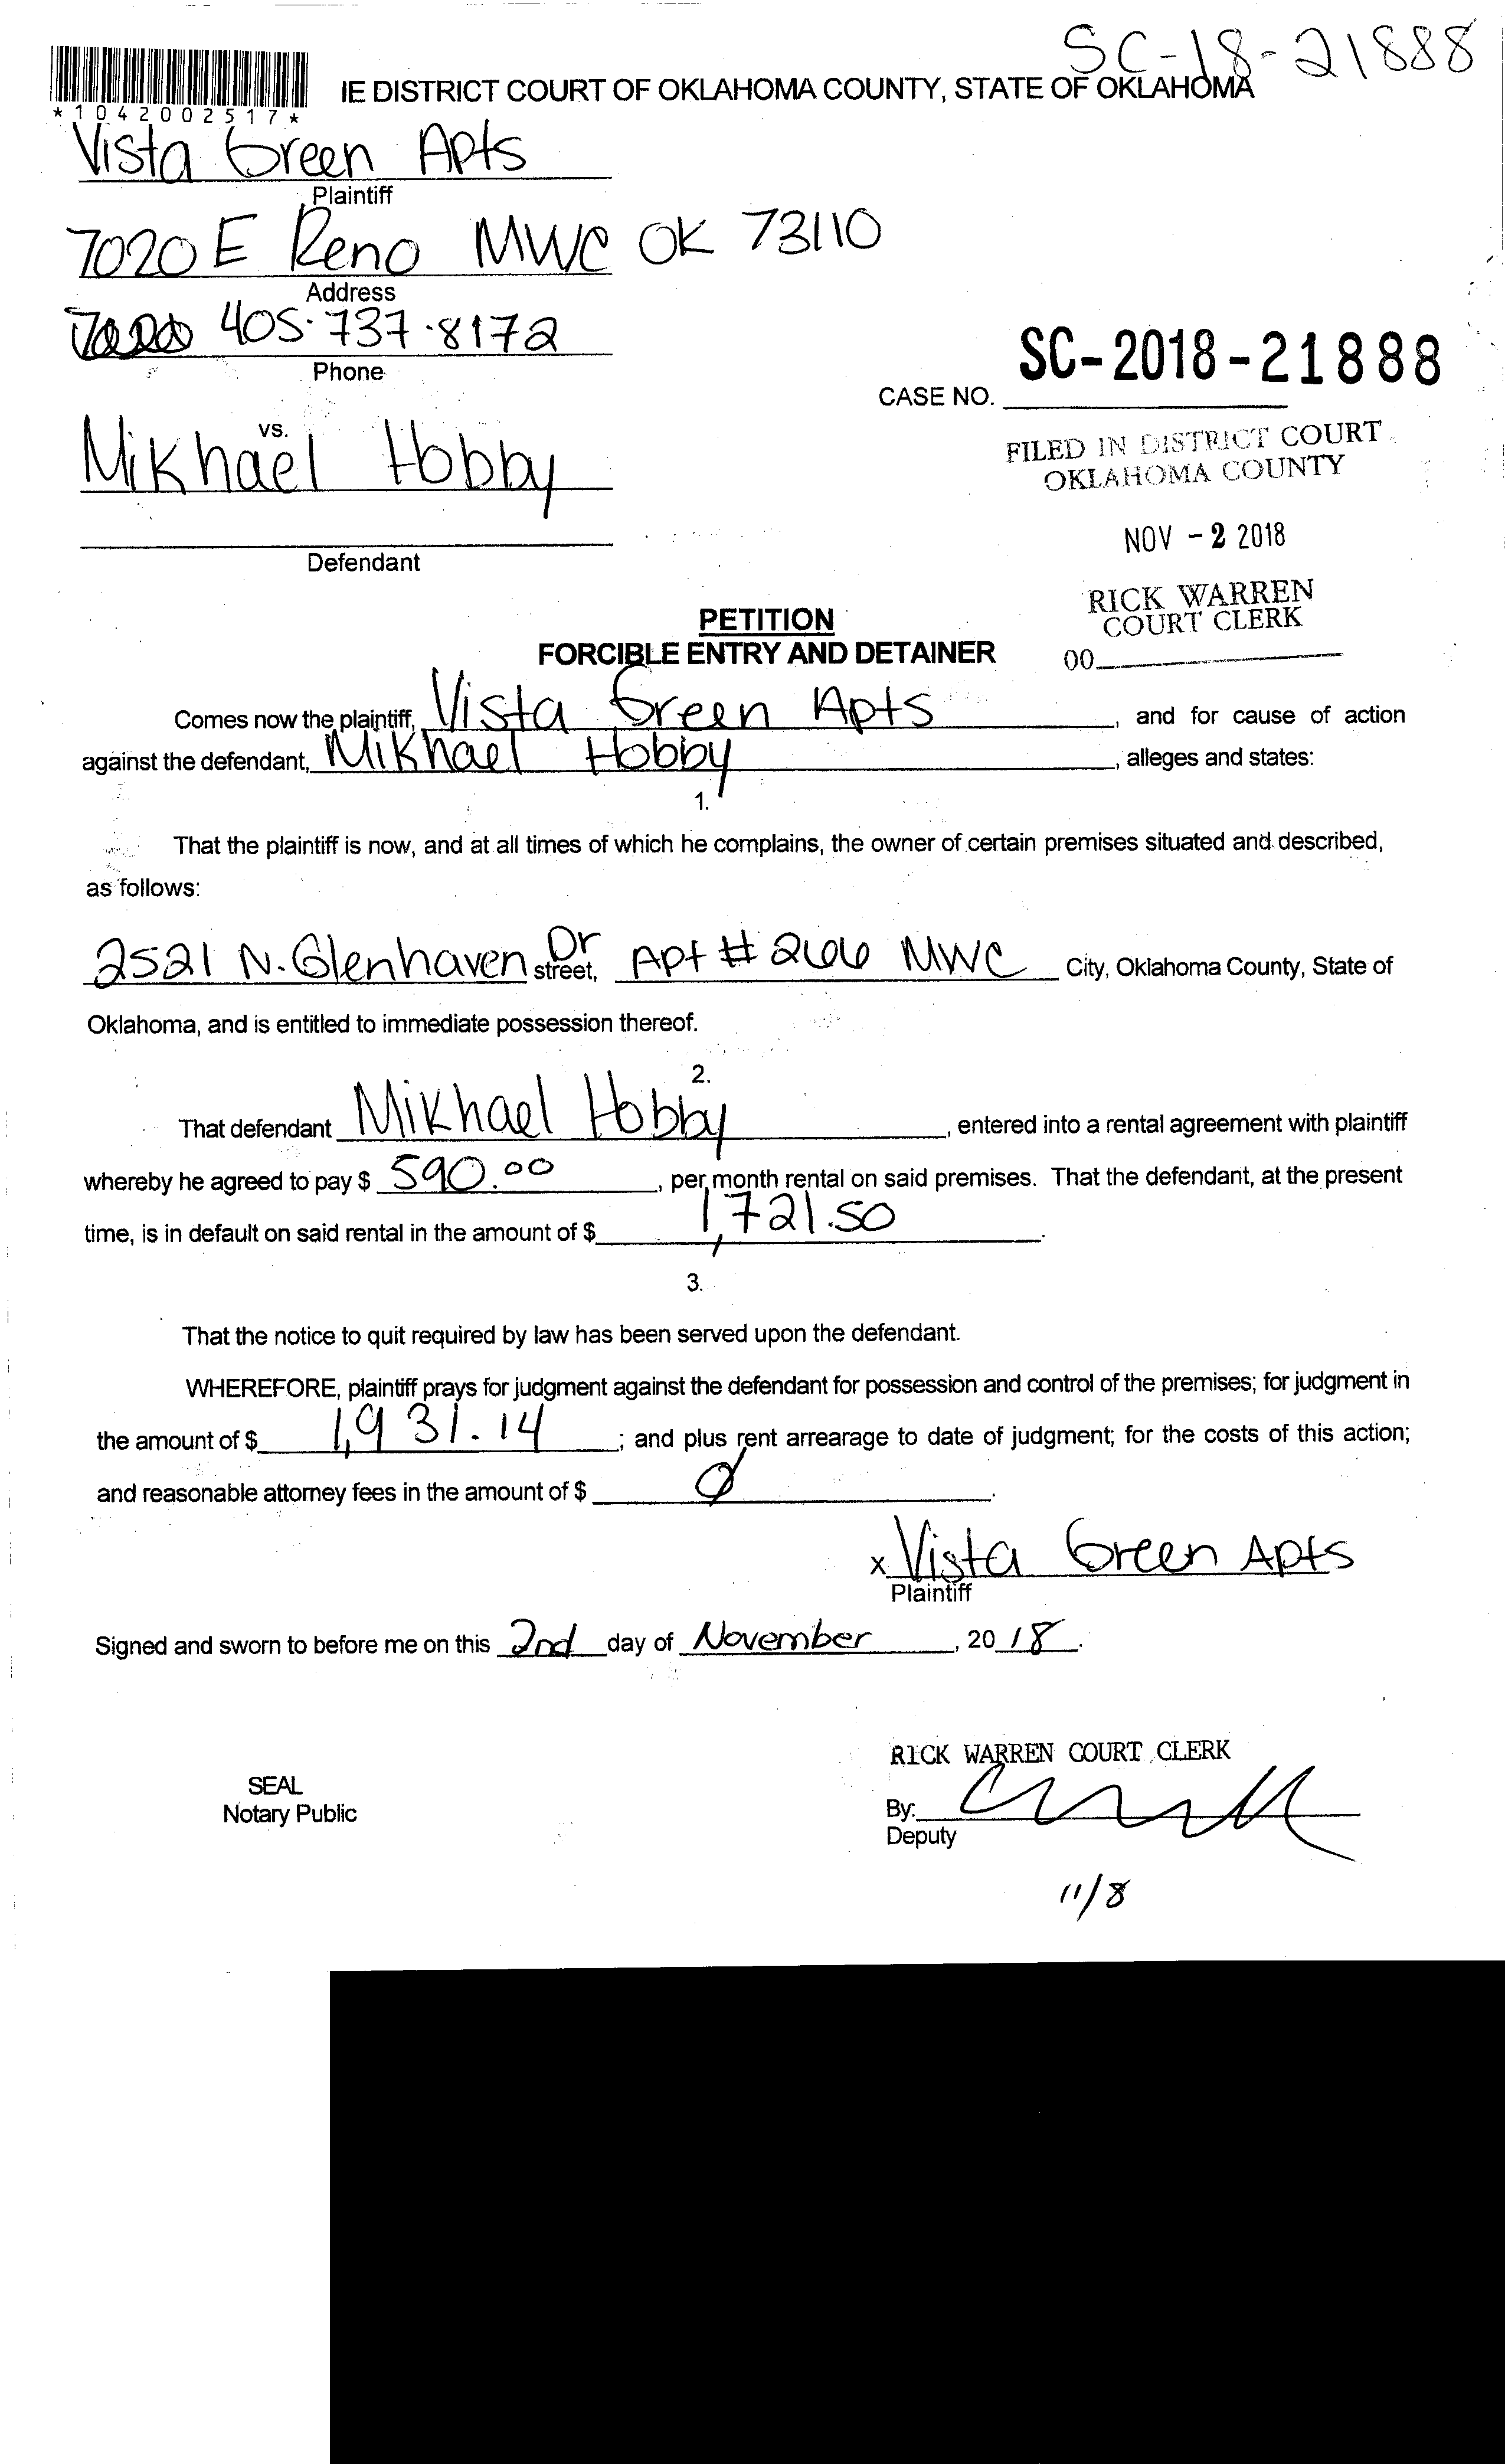 SC-18-21888
IE DISTRICT COURT OF OKLAHOMA COUNTY, STATE OF OKLAHOMA
*1042002517*
Vista Green Apts
Plaintiff
7020 E Reno MWC OK 73110
Address
405.737.8172
Phone
SC-2018-21888
CASE NO.
vs.
Mikhael Hobby
FILED IN DISTRICT COURT
OKLAHOMA COUNTY
NOV - 2 2018
Defendant
RICK WARREN
COURT CLERK
00
PETITION
FORCIBLE ENTRY AND DETAINER
Comes now the plaintiff, Vista Green Apts, and for cause of action
against the defendant, Mikhael Hobby, alleges and states:
1.
That the plaintiff is now, and at all times of which he complains, the owner of certain premises situated and described,
as follows:
2521 N. Glenhaven Dr street, Apt # 266 MWC City, Oklahoma County, State of
Oklahoma, and is entitled to immediate possession thereof.
2.
That defendant Mikhael Hobby, entered into a rental agreement with plaintiff
whereby he agreed to pay $ 590.00, per month rental on said premises. That the defendant, at the present
time, is in default on said rental in the amount of $ 1,721.50.
3.
That the notice to quit required by law has been served upon the defendant.
WHEREFORE, plaintiff prays for judgment against the defendant for possession and control of the premises; for judgment in
the amount of $ 1,931.14; and plus rent arrearage to date of judgment; for the costs of this action;
and reasonable attorney fees in the amount of $ Ø.
x Vista Green Apts
Plaintiff
Signed and sworn to before me on this 2nd day of November, 20 18.
RICK WARREN COURT CLERK
SEAL
Notary Public
By:
Deputy
11/8